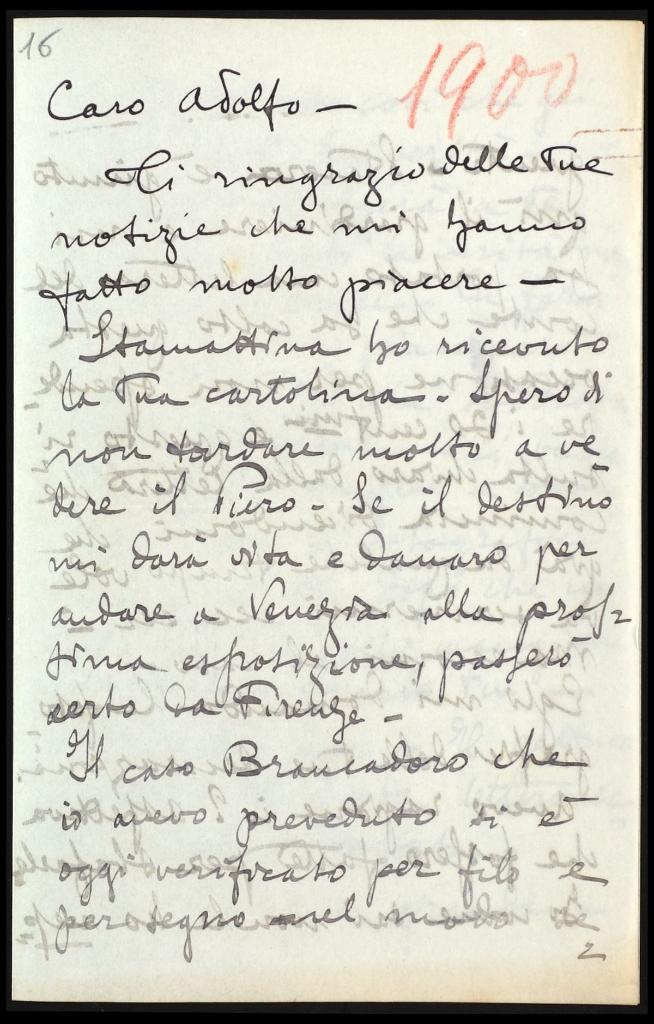 16
1900
Caro Adolfo —
Ti ringrazio delle tue
notizie che mi hanno
fatto molto piacere —
Stamattina ho ricevuto
la tua cartolina - Spero di
non tardare molto a ve
dere il Piero - Se il destino
mi darà vita e danaro per
andare a Venezia alla pros=
sima esposizione, passerò
certo da Firenze -
Il caso Brancadoro che
io avevo preveduto si è
oggi verificato per filo e
per segno nel modo